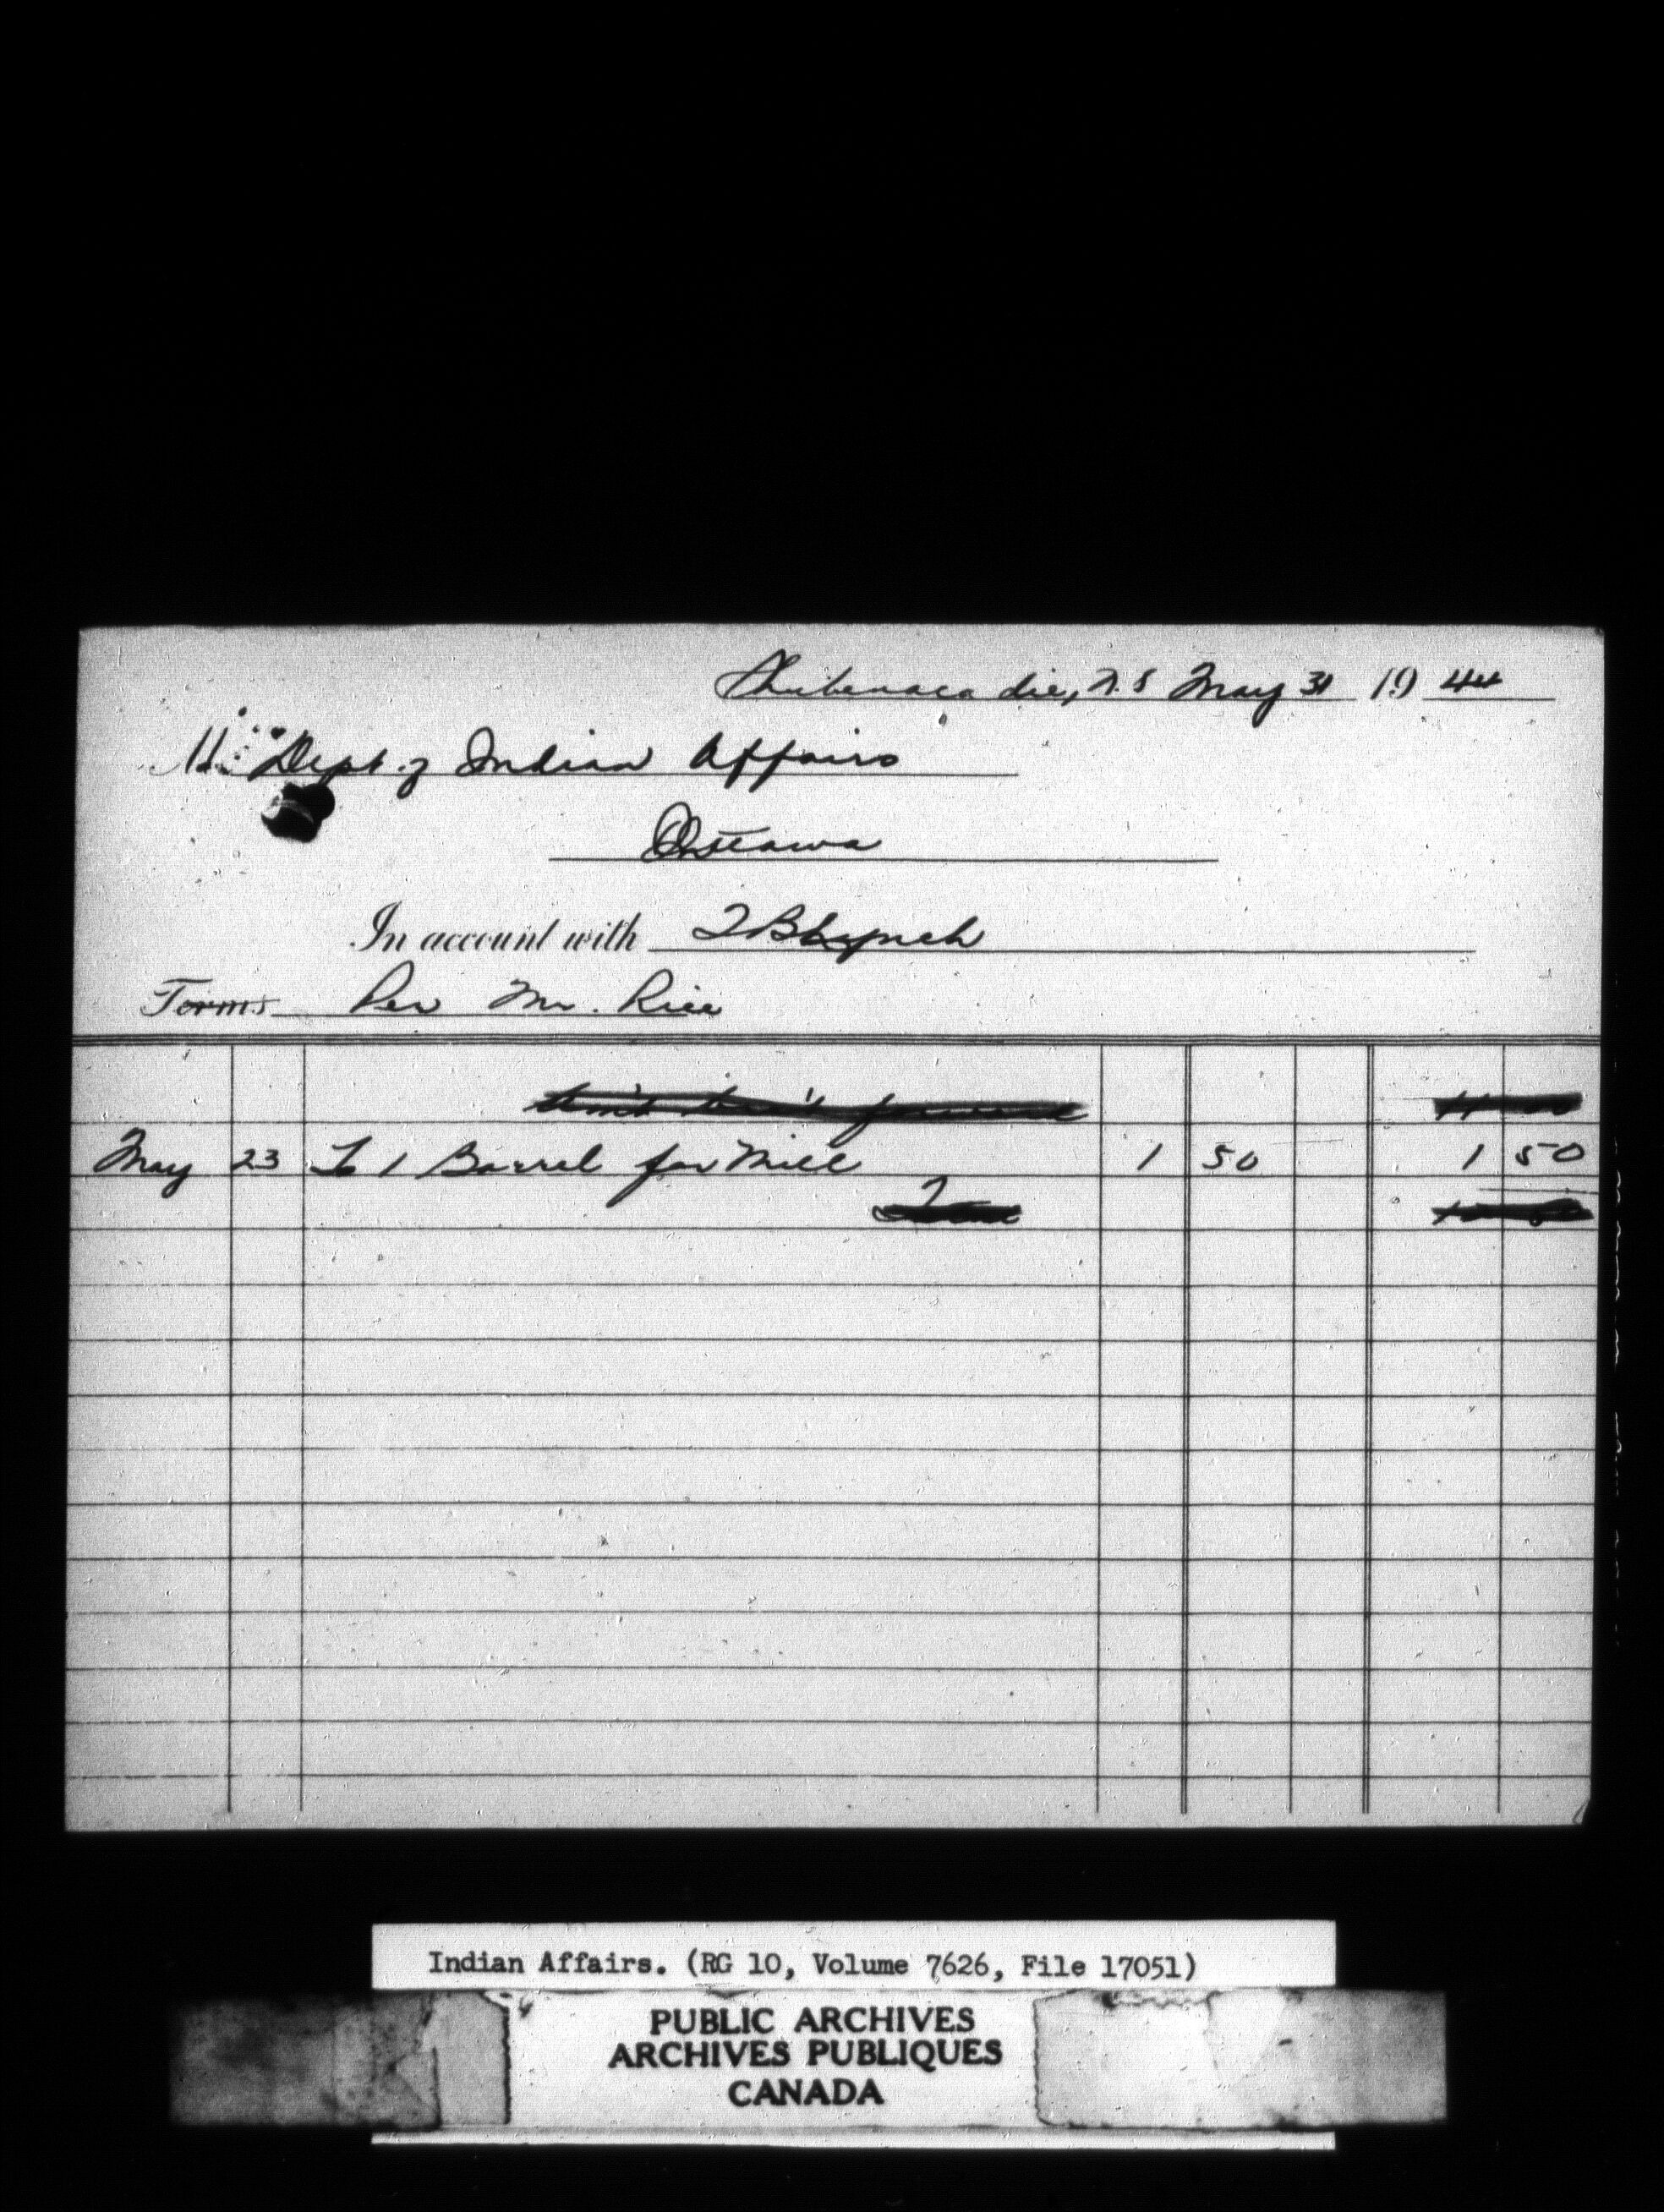 Shubenacadie, N.S May 31 19 44
M Dept. of Indian Affairs
Ottawa
In account with T B Lynch
Terms Per Mr. Rice
May 23 To 1 Barrel for Mill 1 50 1 50
Indian Affairs. (RG 10, Volume 7626, File 17051)
PUBLIC ARCHIVES
ARCHIVES PUBLIQUES
CANADA